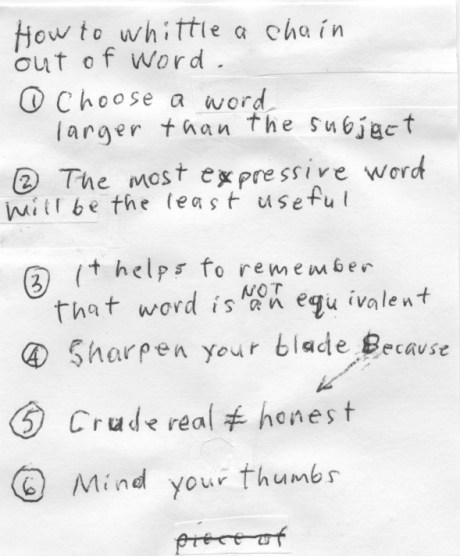 How to whittle a chain
out of word.
① Choose a word
larger than the subject
② The most expressive word
will be the least useful
③ It helps to remember
that word is NOT an equivalent
④ Sharpen your blade Because
⑤ Crude real ≠ honest
⑥ Mind your thumbs
piece of